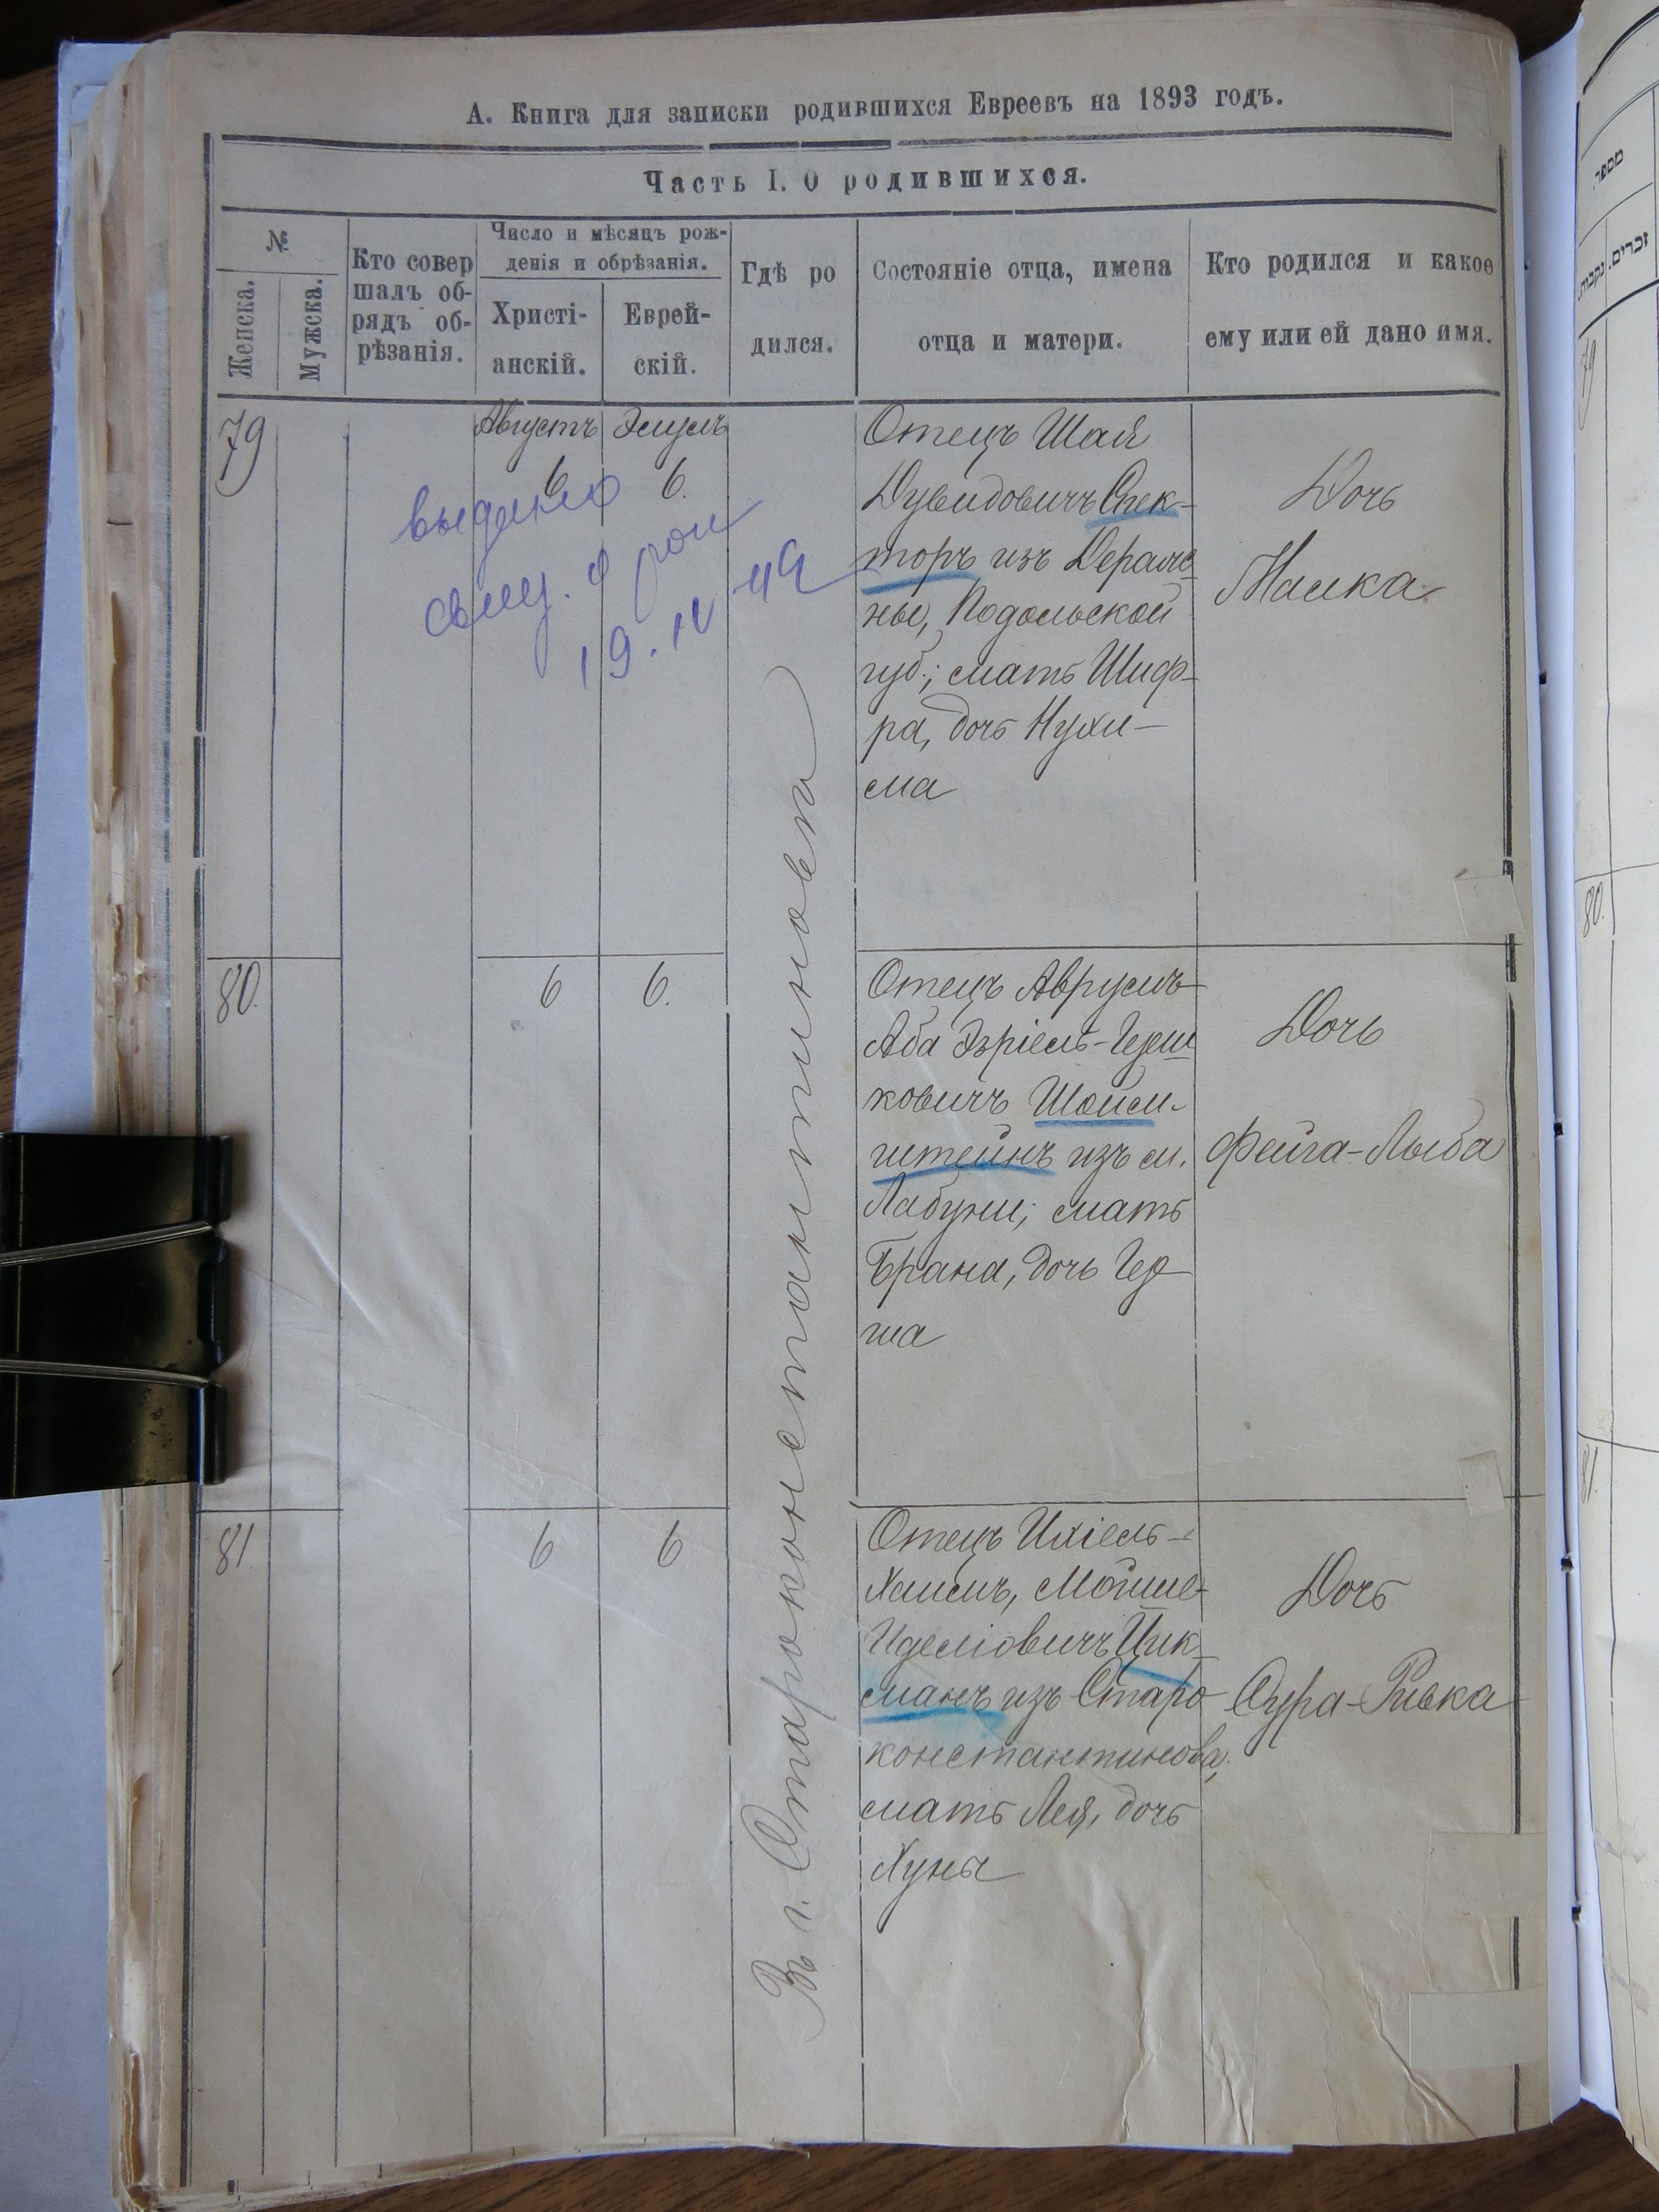 А. Книга для записки родившихся Евреевъ на 1893 годъ.
Часть I. О родившихся.
№
Женска.
Мужска.
Кто совер
шалъ об-
рядъ об-
рѣзанія.
Число и мѣсяцъ рож-
денія и обрѣзанія.
Христі-
анскій.
Еврей-
скій.
Гдѣ ро
дился.
Состояніе отца, имена
отца и матери.
Кто родился и какое
ему или ей дано имя.
79
Августъ
6
Элулъ
6.
выдано
свид. о рож
19.IV
В г. Староконстантиновѣ
Отецъ Шая
Дувидовичъ Спек-
торъ изъ Деражс
ны, Подольской
губ.; мать Шиф-
ра, дочь Нухи-
ма
Дочь
Малка
80.
6
6.
Отецъ Аврумъ-
Аба Эзріель-Герш
ковичъ Шойм-
штейнъ изъ м.
Лабуни; мать
Брана, дочь Гер
ша
Дочь
Фейга-Лыба
81.
6
6
Отецъ Ихіель-
Хаимъ, Мойше-
Иделіовичъ Цик
манъ изъ Старо
константинова,
мать Лея, дочь
Хуны
Дочь
Сура-Ривка
מספר
זכרים.
נקבות.
79
80.
81.